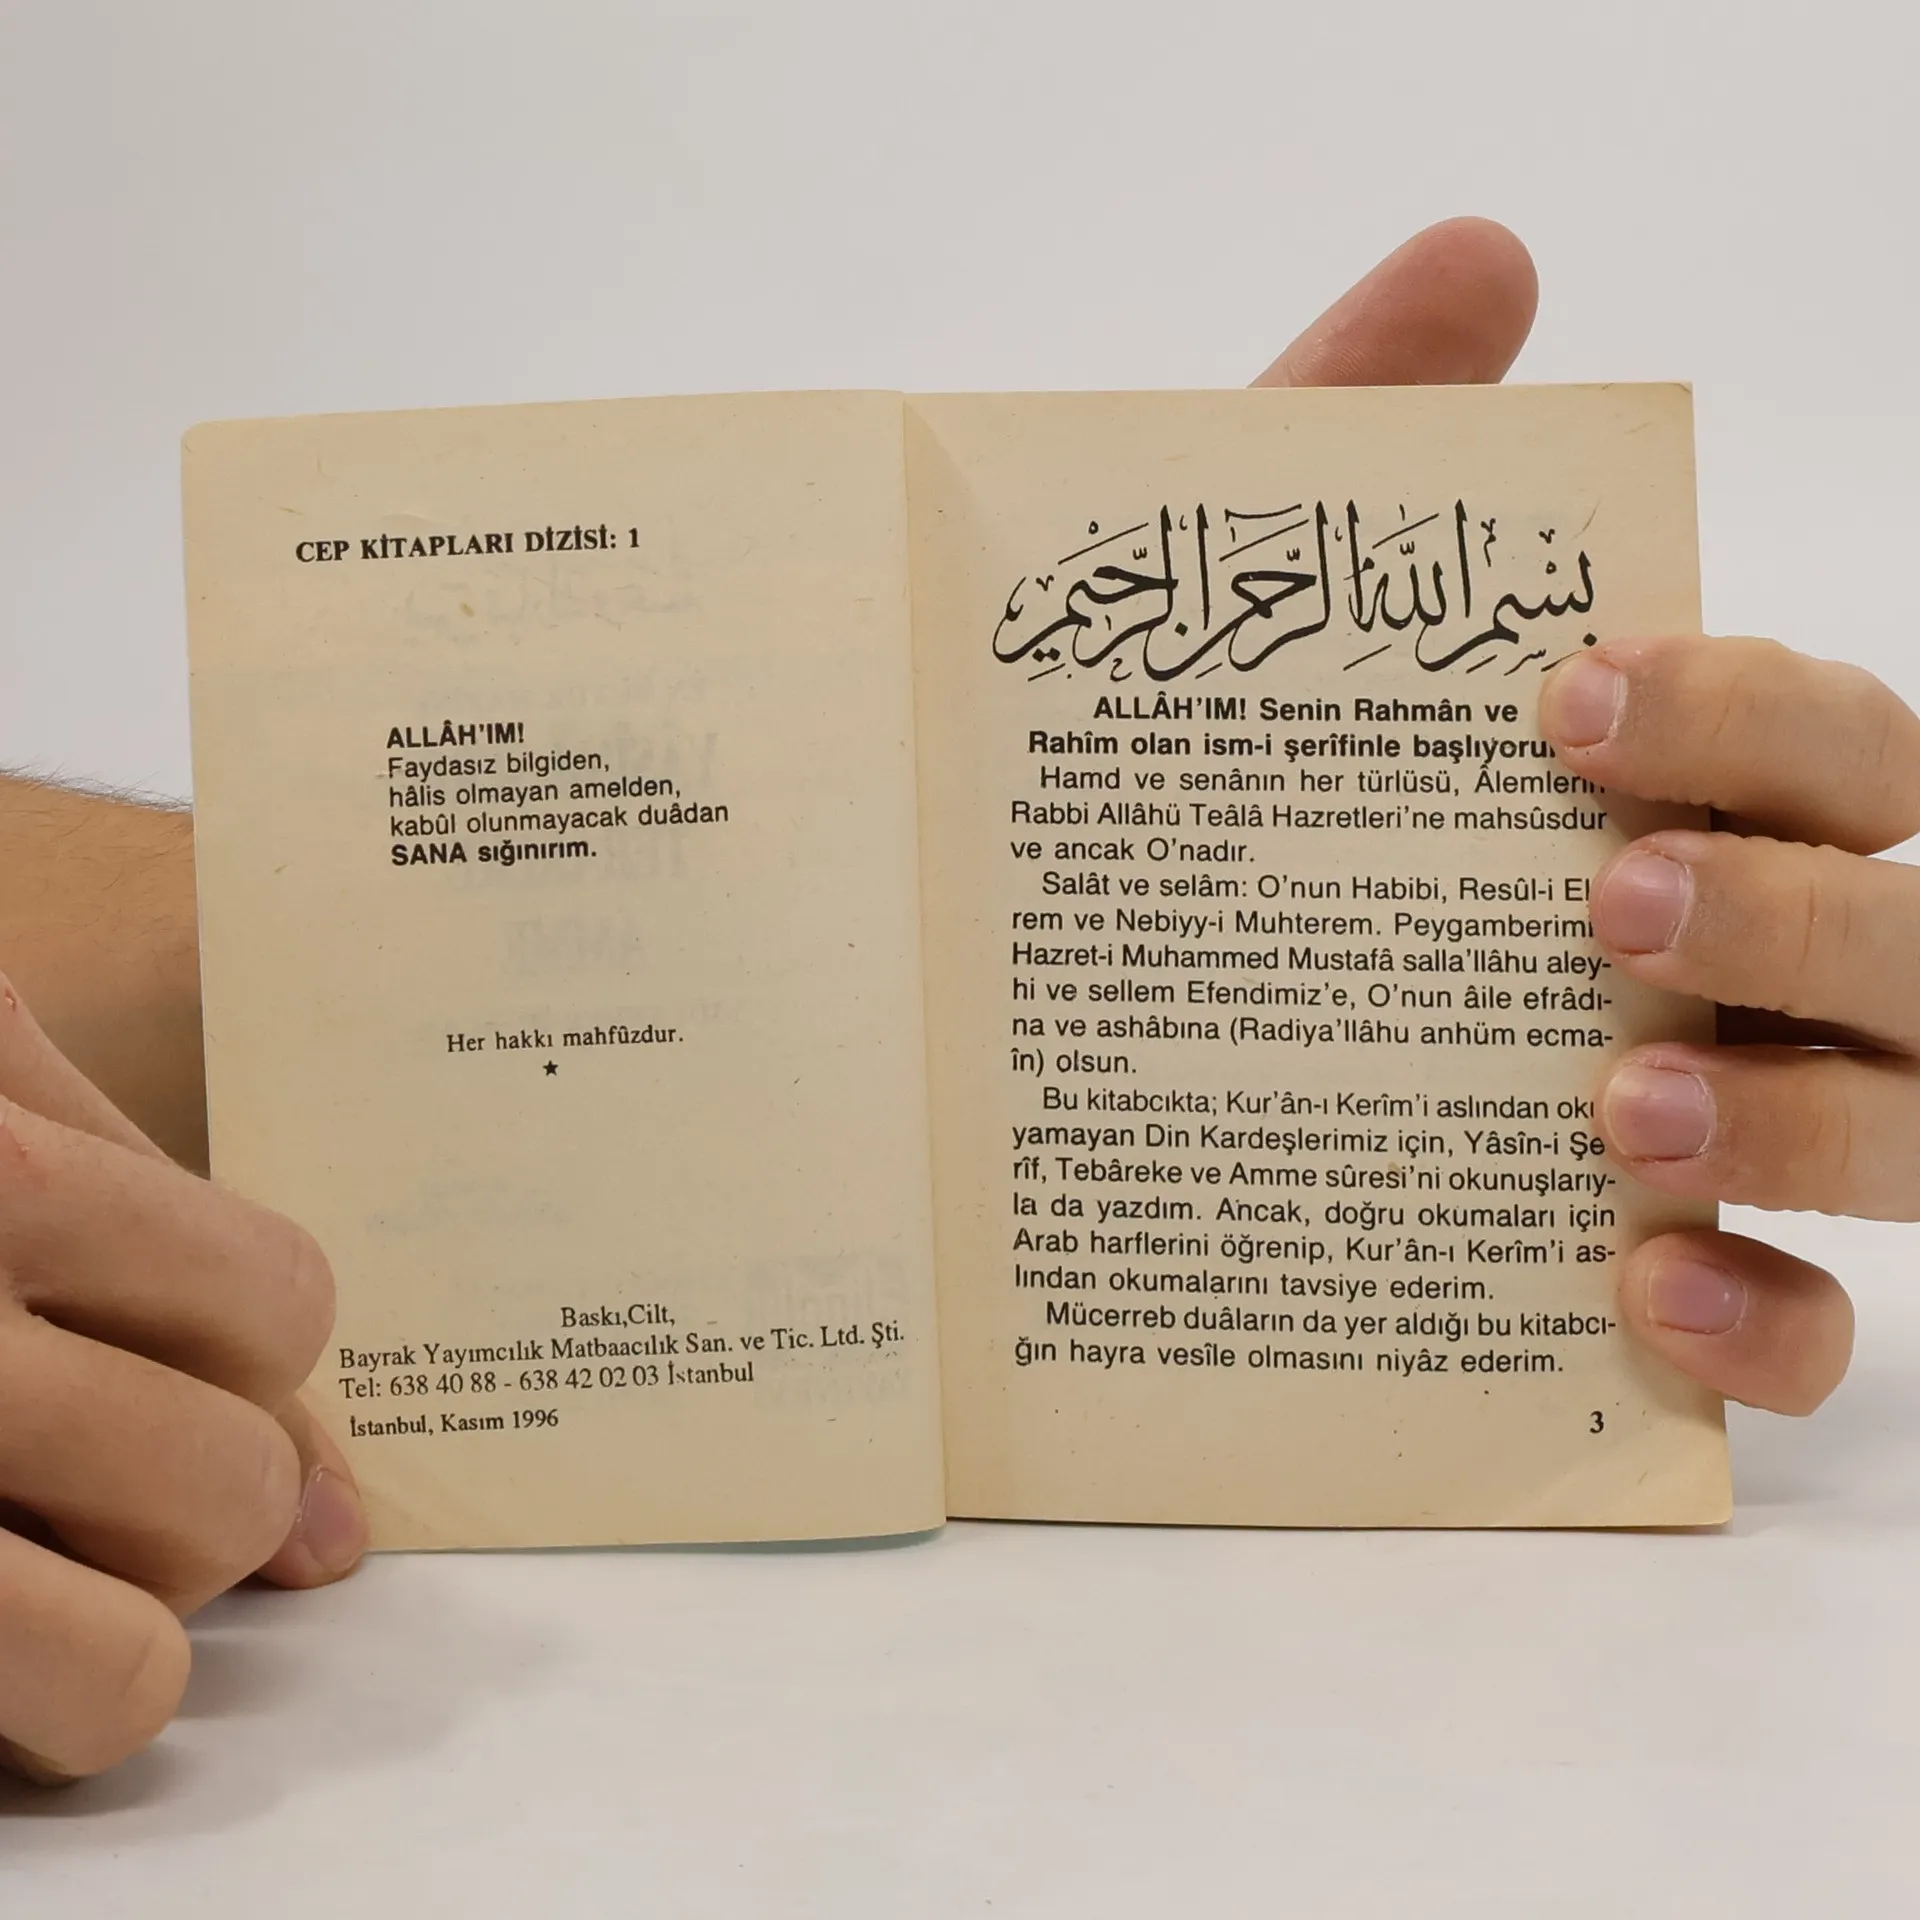 CEP KİTAPLARI DİZİSİ: 1
ALLÂH'IM!
Faydasız bilgiden,
hâlis olmayan amelden,
kabûl olunmayacak duâdan
SANA sığınırım.
Her hakkı mahfûzdur.
★
Baskı,Cilt,
Bayrak Yayımcılık Matbaacılık San. ve Tic. Ltd. Şti.
Tel: 638 40 88 - 638 42 02 03 İstanbul
İstanbul, Kasım 1996
بِسْمِ اللَّهِ الرَّحْمَٰنِ الرَّحِيمِ
ALLÂH'IM! Senin Rahmân ve
Rahîm olan ism-i şerîfinle
Hamd ve senânın her türlüsü,
Rabbi Allâhü Teâlâ Hazretleri'ne mahsûsdur
ve ancak O'nadır.
Salât ve selâm: O'nun Habibi, Resûl-i
rem ve Nebiyy-i Muhterem.
Hazret-i Muhammed Mustafâ salla'llâhu aley-
hi ve sellem Efendimiz'e, O'nun âile efrâdı-
na ve ashâbına (Radiya'llâhu anhüm ecma-
în) olsun.
Bu kitabcıkta; Kur'ân-ı Kerîm'i aslından
yamayan Din Kardeşlerimiz için, Yâsîn-i Şe
rîf, Tebâreke ve Amme sûresi'ni okunuşlarıy-
la da yazdım. Ancak, doğru okumaları için
Arab harflerini öğrenip, Kur'ân-ı Kerîm'i as-
lından okumalarını tavsiye ederim.
Mücerreb duâların da yer aldığı bu kitabcı-
ğın hayra vesîle olmasını niyâz ederim.
3